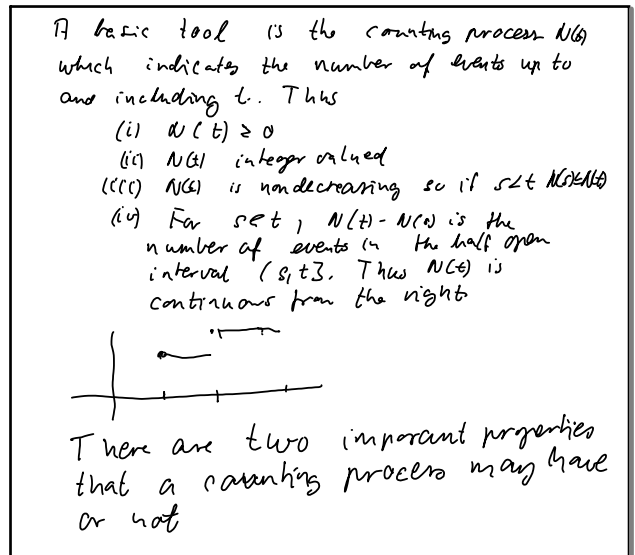 A basic tool is the counting process N(t)
which indicates the number of events up to
and including t. Thus
(i) N(t) ≥ 0
(ii) N(t) integer valued
(iii) N(t) is nondecreasing so if s<t N(s)≤N(t)
(iv) For s<t, N(t)-N(s) is the
number of events in the half open
interval (s,t]. Thus N(t) is
continuous from the right
There are two imporant properties
that a counting process may have
or not